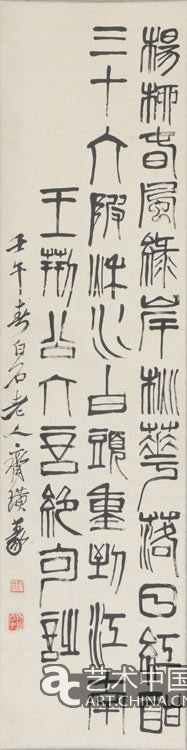 楊柳春風綠岸桃華落日紅酣
三十六陂流水白頭重到江南
王荊公六言絕句
壬午春白石老人齊璜篆
艺术中国
ARTCHINA.CN